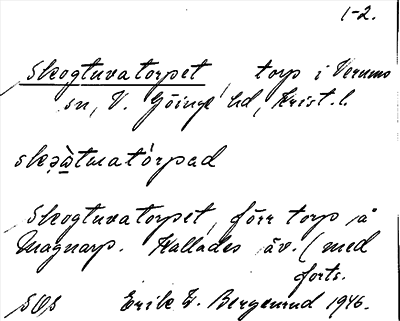 1-2.
Skogtuvatorpet, torp i Verums
sn, V. Göinge hd, Krist. l.
skə̀ất​matórpad
Skogtuvatorpet, förr torp på
Magnarp. Kallades äv. (med
forts.
SOS Erik W. Bergenrud 1946.